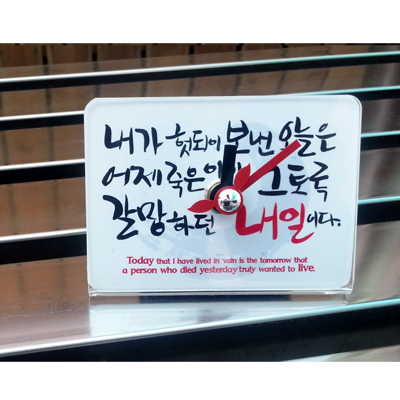 내가 헛되이 보낸 오늘은
어제 죽은 그토록
갈망하던 내일이다.
Today that I have lived in vain is the tomorrow that
a person who died yesterday truly wanted to live.